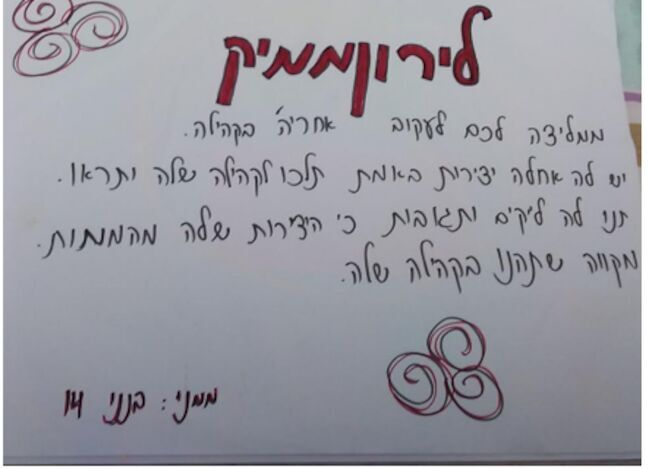 לירוןממיק
ממליצה לכם לעקוב אחריה' בקהילה.
יש לה אחלה יצירות באמת תלכו לקהילה שלה ותראו.
תנו לה לייקים ותגובות כי היצירות שלה מהממות.
מקווה שתהנו בקהילה שלה.
ממני: בנני 14